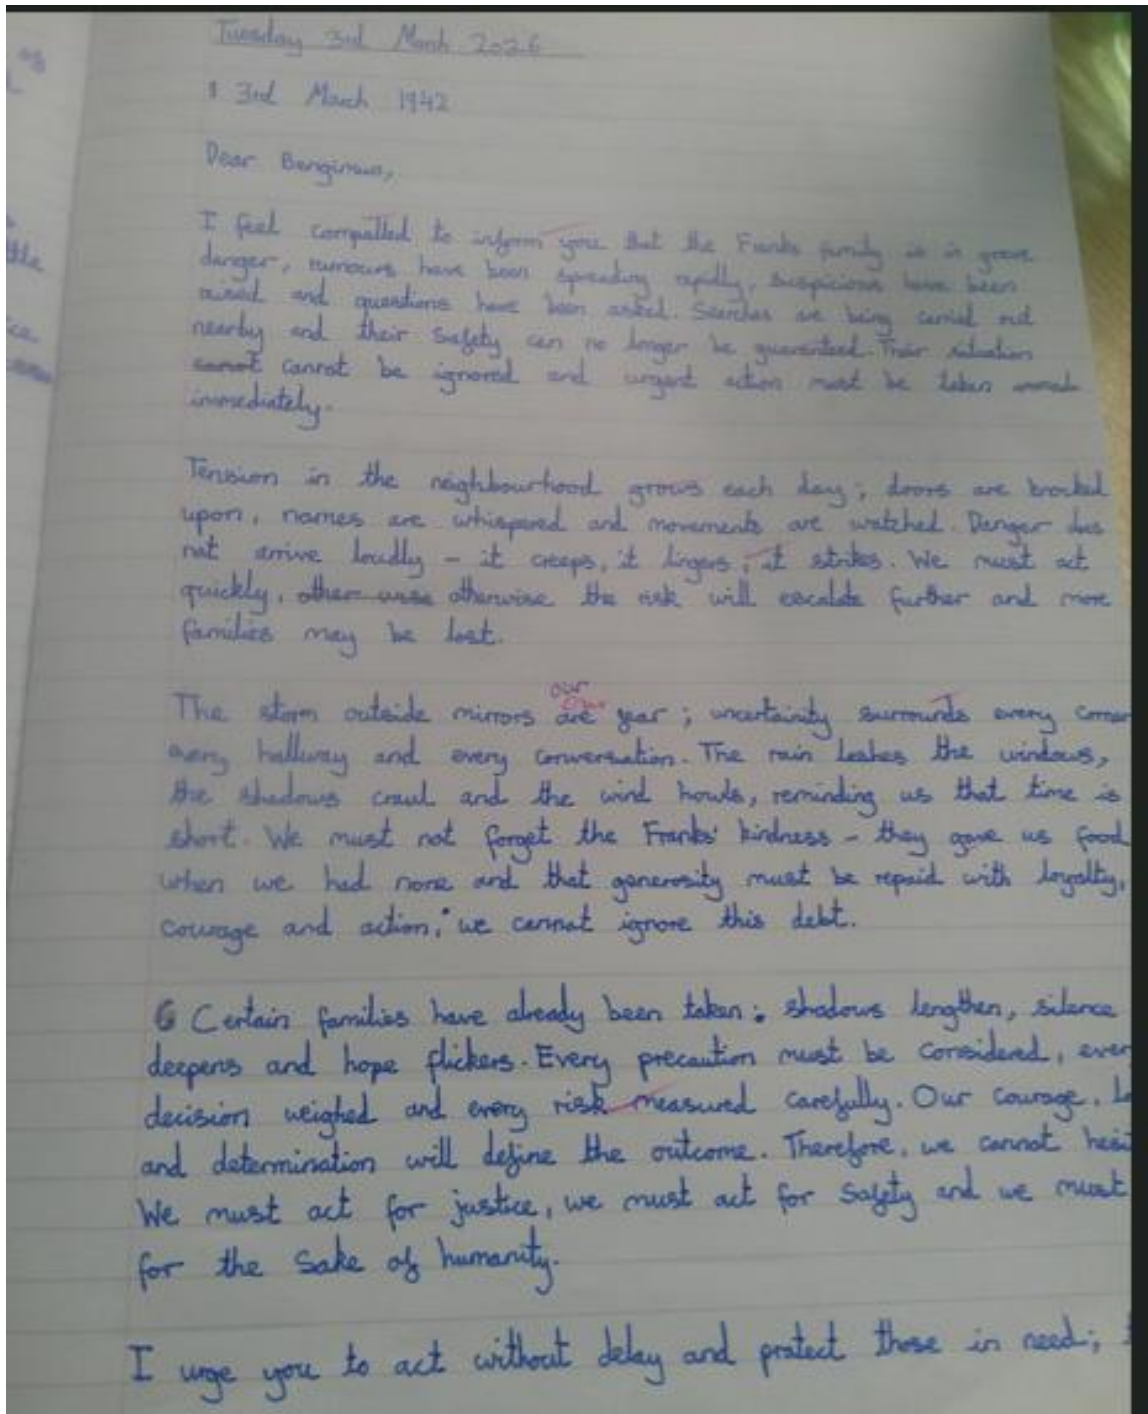 Tuesday 3rd March 2026
3rd March 1942
Dear
I feel compelled to inform you that the Franks family is in grave
danger, rumours have been spreading rapidly, suspicions have been
raised and questions have been asked. Searches are being carried out
nearby and their safety can no longer be guaranteed. Their situation
cannot be ignored and urgent action must be taken
immediately.
Tension in the neighbourhood grows each day; doors are knocked
upon, names are whispered and movements are watched. Danger does
not arrive loudly – it creeps, it lingers, it strikes. We must act
quickly, other wise otherwise the risk will escalate further and more
families may be lost.
our
The storm outside mirrors are year; uncertainity surrounds every corner
every hallway and every conversation. The rain lashes the windows,
the shadows crawl and the wind howls, reminding us that time is
short. We must not forget the Franks' kindness – they gave us food
when we had none and that generosity must be repaid with loyalty,
courage and action; we cannot ignore this debt.
Certain families have already been taken: shadows lengthen, silence
deepens and hope flickers. Every precaution must be considered, ever
decision weighed and every risk measured carefully. Our courage, lo
and determination will define the outcome. Therefore, we cannot hesi
We must act for justice, we must act for safety and we must
for the sake of humanity.
I urge you to act without delay and protect those in need;